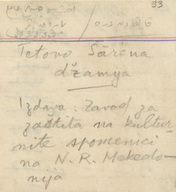 93
Tetovo Šarena
džamija
Izdava: Zavod za
zaštita na kultur
nite spomenici
na N. R. Makedo-
nija